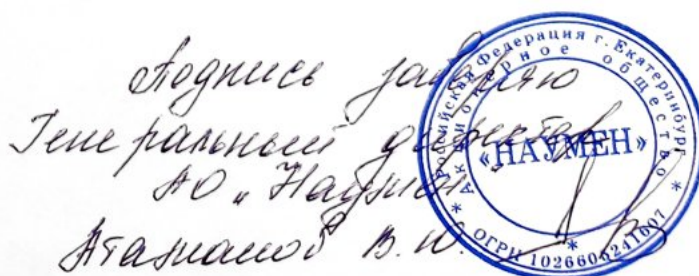 Подпись заверяю
Генеральный директор
АО „Наумен"
В.Ю.
Российская Федерация г. Екатеринбург
Акционерное общество
«НАУМЕН»
ОГРН